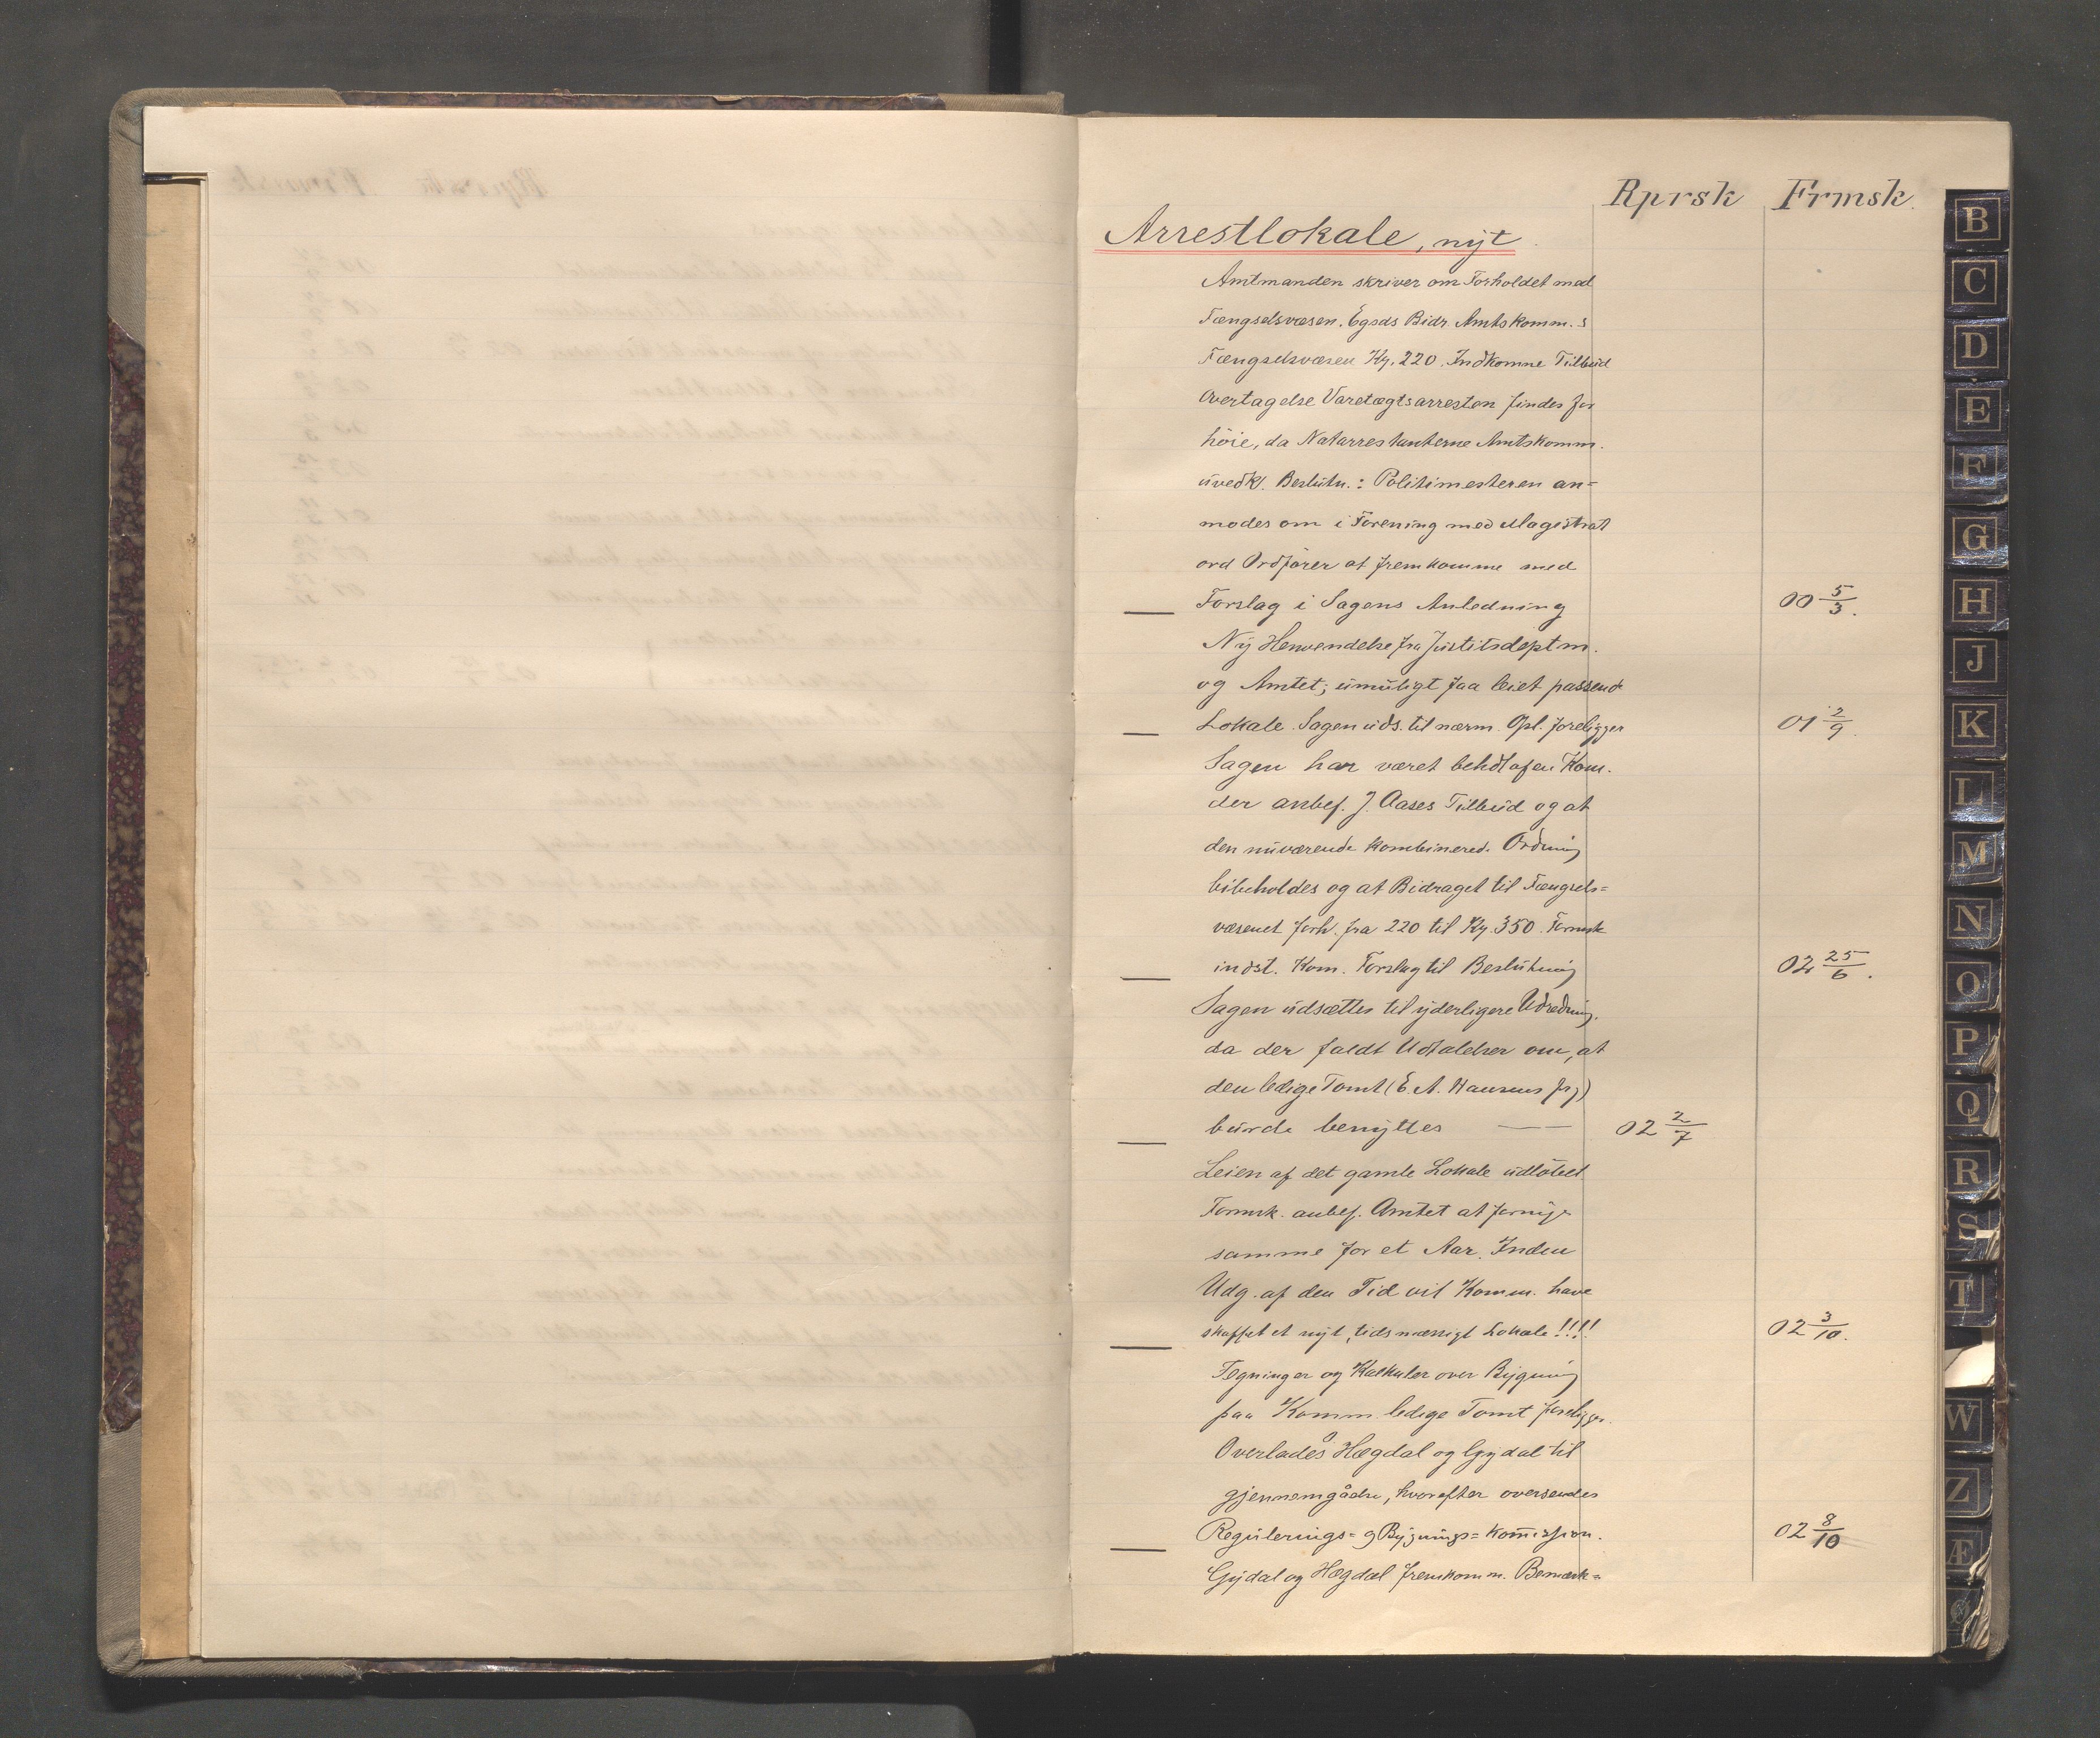 Rprsk Frmsk.
Arrestlokale, nyt.
Amtmanden skriver om Forholdet med
Fængselsvæsen. Egsds Bidr. Amtskomm.s
Fængselsvæsen Kr. 220. Indkomne Tilbud
Overtagelse Varetægtsarresten findes for
höie, da Natarrestanterne Amtskomm.
uvedk. Beslutn.: Politimesteren an=
modes om i Forening med Magistrat
ord Ordförer at fremkomme med
Forslag i Sagens Anledning 00 5/3.
Ny Henvendelse fra Justitsdeptm.
og Amtet; umuligt faa leiet passende
Lokale. Sagen uds. til nærm. Opl. foreligger 01 2/9.
Sagen har været behdl af en Kom.
der anbef. J. Aases Tilbud og at
den nuværende kombinerede Ordning
bibeholdes og at Bidraget til Fængsels=
væsenet forh. fra 220 til Kr. 350. Formsk
indst. Kom. Forslag til Beslutning 02 25/6.
Sagen udsættes til yderligere Udredning.
da der faldt Udtalelser om, at
den ledige Tomt (E. A. Hansens frg)
burde benyttes — — 02 2/7
Leien af det gamle Lokale udlöbet
Formsk. anbef. Amtet at forny
samme for et Aar. Inden
Udg. af den Tid vil Komm. have
skaffet et nyt, tidsmæssigt Lokale!!!! 02 3/10.
Tegninger og Kalkuler over Bygning
paa Komm. ledige Tomt foreligger.
Overlades Hægdal og Gydal til
gjennemgåelse, hvorefter oversendes
Regulerings= og Bygnings= Komission. 02 8/10
Gydal og Hægdal fremkomm. Bemærk=
B
C
D
E
F
G
H
J
K
L
M
N
O
P
Q
R
S
T
W
Z
Æ
Ø